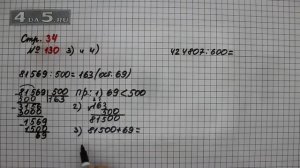 4DA5.RU
Стр. 34
№ 130 3) и 4)
424807:600=
81569:500=163(ост.69)
-81569|500
500 163
пр: 1) 69<500
-3156
3000
2) ×163
500
81500
-1569
1500
69
3) 81500+69=